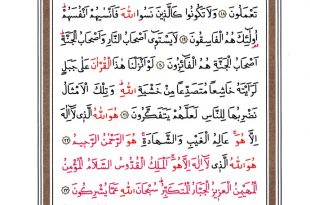 تَعْمَلُونَ ﴿١٨﴾ وَلَا تَكُونُوا كَالَّذِينَ نَسُوا اللّٰهَ فَاَنْسٰيهُمْ اَنْفُسَهُمْ
اُولٰٓئِكَ هُمُ الْفَاسِقُونَ ﴿١٩﴾ لَا يَسْتَوٓى اَصْحَابُ النَّارِ وَاَصْحَابُ الْجَنَّةِ
اَصْحَابُ الْجَنَّةِ هُمُ الْفَٓائِزُونَ ﴿٢٠﴾ لَوْ اَنْزَلْنَا هٰذَا الْقُرْاٰنَ عَلٰى جَبَلٍ
لَرَاَيْتَهُ خَاشِعًا مُتَصَدِّعًا مِنْ خَشْيَةِ اللّٰهِ وَتِلْكَ الْاَمْثَالُ
نَضْرِبُهَا لِلنَّاسِ لَعَلَّهُمْ يَتَفَكَّرُونَ ﴿٢١﴾ هُوَ اللّٰهُ الَّذِى لَٓا اِلٰهَ
اِلَّا هُوَ عَالِمُ الْغَيْبِ وَالشَّهَادَةِ هُوَ الرَّحْمٰنُ الرَّحِيمُ ﴿٢٢﴾
هُوَ اللّٰهُ الَّذِى لَٓا اِلٰهَ اِلَّا هُوَ اَلْمَلِكُ الْقُدُّوسُ السَّلَامُ الْمُؤْمِنُ
الْمُهَيْمِنُ الْعَزِيزُ الْجَبَّارُ الْمُتَكَبِّرُ سُبْحَانَ اللّٰهِ عَمَّا يُشْرِكُونَ ﴿٢٣﴾